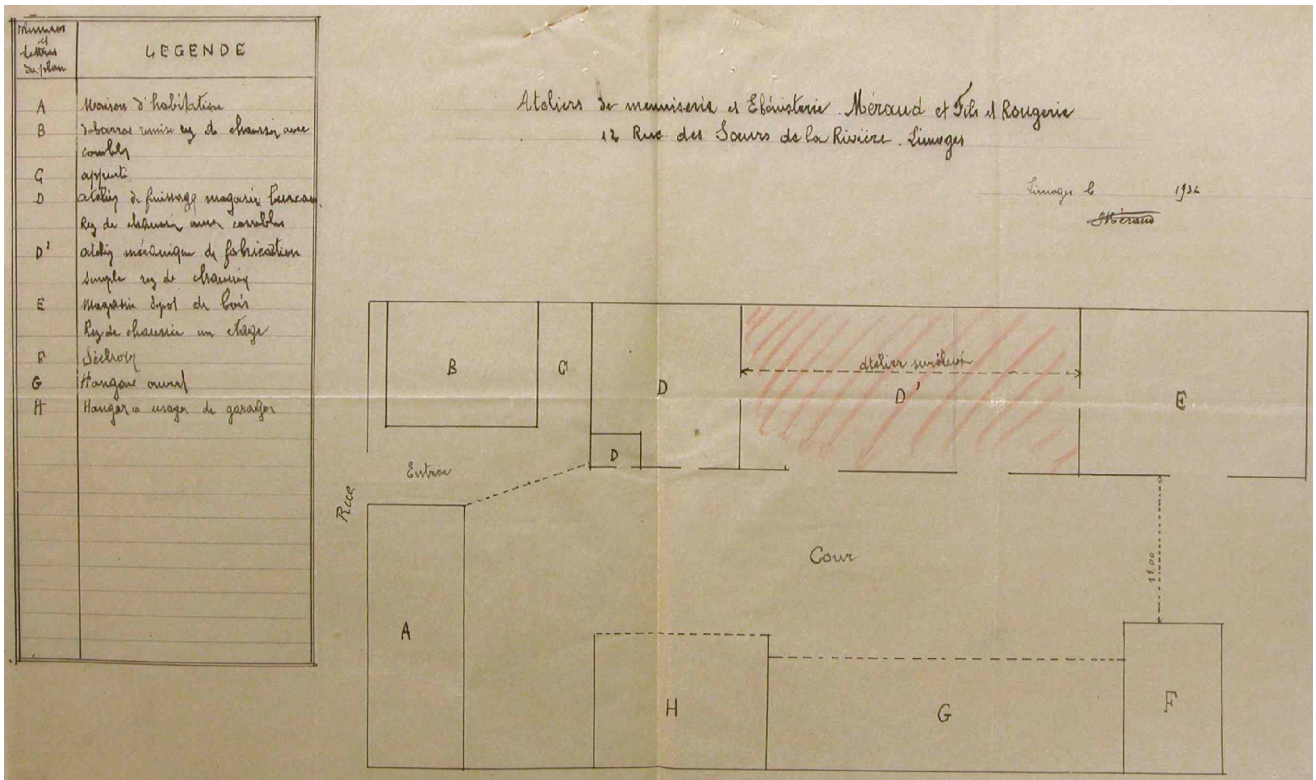 Numéros
et
lettres
du plan
LEGENDE
A Maison d'habitation
B débarras remise rez de chaussée avec
combles
C appenti
D atelier de finissage magasin bureau
Rez de chaussée avec combles
D' atelier mécanique de fabrication
simple rez de chaussée
E Magasin dépot de bois
Rez de chaussée un étage
F Séchoir
G Hangar ouvert
H Hangar a usage de garages
Ateliers de menuiserie et Ebénisterie Méraud et Fils et Rougerie
12 Rue des Sœurs de la Rivière. Limoges
Limoges le 193
Méraud
B
C
D
atelier surélevé
D'
E
D
Entrée
Rue
Cour
11,00
A
H
G
F